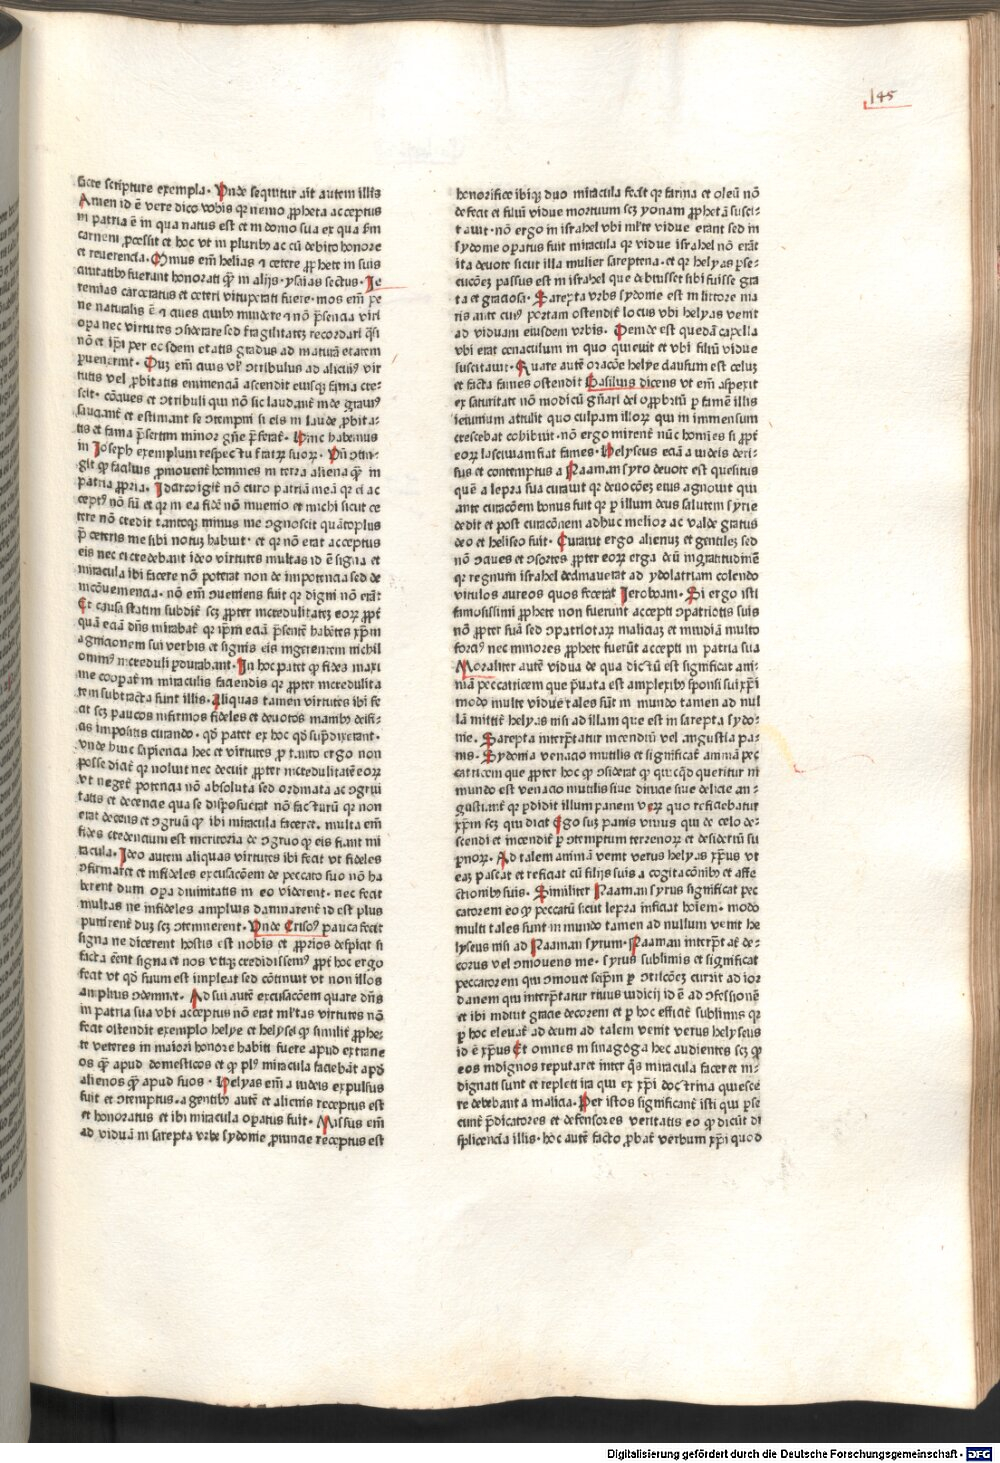 145
sacre scripture exempla· Vnde sequitur ait autem illis
Amen id ē vere dico vobis qꝛ nemo ꝓpheta acceptus
in patria ē in qua natus est et in domo sua ex qua ẜm
carnem ꝓcessit et hoc vt in pluribꝰ ac cū debito honore
et reuerencia· Omnus em̄ helias ⁊ cetere ꝓphete in suis
ciuitatibꝰ fuerant honorati qͣꝫ in alijs· ysaias sectus· Ie
remias carceratus et ceteri vituperati fuere· mos em̄ pe
ne naturalis ē
opa nec virtutes ↄsiderare sed fragilitateꝫ recordari
nō et ip̄i per eosdem etatis gradus ad maturā etatem
ꝑuenerint·
tutis vel ꝓbitatis eminenciā ascendit eiusqꝫ fama cre⸗
scit· qui nō sic laudant̄ inde
et estimant se ↄtempni si eis in laude ꝓbita⸗
tis et fama p̄sertim minor p̄ferat̄· Hinc habemus
in Joseph exemplum respectu fratꝝ suoꝝ·
git ꝙ facilius ꝓmouent̄ homines in terra aliena qͣꝫ in
patria ꝓpria· Id arco igit̄ nō curo patriā meā qꝛ ei ac
ceptꝰ nō sū et qꝛ in ea fidē nō inuenio et michi sicut ce
tere nō credit tantoqꝫ minus me ↄgnoscit quātoplus
p̄ ceteris me sibi notuꝫ habuit· et qꝛ nō erat acceptus
eis nec ei credebant ideo virtutes multas id ē signa et
miracula ibi facere nō poterat non de impotencia sed de
incōueniencia· nō em̄ ↄueniens fuit qꝛ digni nō erāt
Et causā statim subdit scꝫ ꝓpter incredulitateꝫ eoꝝ ꝓpt̄
quā eciā dn̄s mirabat̄ qꝛ ip̄m eciā p̄sentē habētes xp̄m
agnicionem sui verbis et signis eis ingerentem nichil
ominꝰ increduli ꝑdurabant· In hoc patet ꝙ fides maxi
me cooꝑat̄ in miraculis faciendis qꝛ ꝓpter incredulita
tem subtracta sunt illis· Aliquas tamen virtutes ibi fe
cit scꝫ paucos infirmos fideles et deuotos manibꝰ
as impositis curando· qd̄ patet ex hoc qd̄ sup̄dixerant·
vnde huic sapiencia hec et virtutes ꝑ tanto ergo non
posse dicit̄ qꝛ noluit nec decuit ꝓpter incredulitatē eoꝝ
vt neget̄ potencia nō absoluta sed ordinata ac ↄgrui
tatis et decencie qua se disposuerat nō facturū qꝛ non
erat decens et ↄgruū ꝙ ibi miracula faceret· multa em̄
fides credencium est meritoria de ↄgruo ꝙ eis fiant mi
racula· Ideo autem aliquas virtutes ibi fecit vt fideles
ↄfirmaret et infideles excusacōem de peccato suo nō ha
berent dum opa diuinitatis in eo viderent· nec fecit
multas ne infideles amplius damnarent̄ id est plus
punirent̄ duꝫ scꝫ ↄtemnerent· Vnde Crisoꝰ pauca fecit
signa ne dicerent hostis est nobis et ꝓprios despicit si
facta eēnt signa et nos vtiqꝫ credidissemꝰ ꝓpt̄ hoc ergo
fecit vt qd̄ suum est impleat sed cōtinuit vt non illos
amplius ↄdemnet· Ad sui autē excusacōem quare dn̄s
in patria sua vbi acceptus nō erat ml̄tas virtutes nō
fecit ostendit exemplo helye et helysei ꝙ similit̄ ꝓphe⸗
te veteres in maiori honore habiti fuere apud extrane
os qͣꝫ apud domesticos et ꝙ plꝰ miracula faciebāt apd̄
alienos qͣꝫ apud suos· Helyas em̄ a iudeis expulsus
fuit et ↄtemptus· a gentibꝰ autē et alienis receptus est
et honoratus et ibi miracula oꝑatus fuit· Missus em̄
ad viduā in sarepta vrbe sydonie ꝓuincie receptus est
honorifice ibiqꝫ duo miracula fecit qꝛ farina et oleū nō
defecit et filiū vidue mortuum scꝫ yonam ꝓphetā susci⸗
tauit· nō ergo in israhel vbi ml̄te vidue erant sed in
sydonie oꝑatus fuit miracula qꝛ vidue israhel nō erāt
ita deuote sicut illa mulier sareptena· et qꝛ helyas ꝑse⸗
cucōeꝫ passus est in israhel que debuisset sibi fuisse gra
ta et graciosa· Sarepta vrbs sydonie est in littore ma
ris ante cuiꝰ portam ostendit̄ locus vbi helyas venit
ad viduam eiusdem vrbis· Deinde est quedā capella
vbi erat cenaculum in quo quieuit et vbi filiū vidue
suscitauit· Quare autē oracōne helye clausum est celuꝫ
et facta fames ostendit Basilius dicens vt em̄ aspexit
ex saturitate nō modicū gn̄ari dei opꝓbriū ꝑ famē illis
ieiunium attulit quo culpam illoꝝ qui in immensum
crescebat cohibuit· nō ergo mirent̄ nūc homīes si ꝓpt̄
eoꝝ lasciuiam fiat fames· Helyseus eciā a iudeis deri⸗
sus et contemptus a Naaman syro deuote est quesitus
quē a lepra sua curauit qꝛ deuocōeꝫ eius agnouit qui
ante curacōem bonus fuit qꝛ ꝑ illum deus salutem syrie
dedit et post curacōnem adhuc melior ac valde gratus
deo et heliseo fuit· Curatur ergo alienus et gentiles sed
nō ↄciues et ↄsortes ꝓpter eoꝝ erga deū ingratitudinē
qꝛ regnum israhel declinauerat ad ydolatriam colendo
vitulos aureos quos fecerat Jeroboam· Si ergo isti
famosissimi ꝓphete non fuerunt accepti ↄpatriotis suis
nō ꝓpter suā sed ↄpatriotaꝝ maliciaꝫ et inuidiā multo
forciꝰ nec minores ꝓphete fuerūt accepti in patria sua
Moraliter autē vidua de qua dictū est significat ani⸗
mā peccatricem que p̄uata est amplexibꝰ sponsi sui xp̄i
modo multe vidue tales sūt in mundo tamen ad nul
lā mittit̄ helyas nisi ad illam que est in sarepta sydo⸗
nie· Sarepta interp̄tatur incendiū vel angustia pa⸗
nis· Sydonia venacio inutilis et significat̄ animā pec
catricem que ꝓpter hoc ꝙ ↄsiderat ꝙ quicqd̄ queritur in
mundo est venacio inutilis siue diuicie siue delicie an⸗
gustiant̄ qꝛ ꝑdidit illum panem veꝝ quo reficiebatur
xp̄m scꝫ qui dicit Ego suꝫ panis viuus qui de celo de⸗
scendi et incendit̄ ꝑ ↄtemptum terrenoꝝ et desideriū su
ꝑnoꝝ· Ad talem animā venit verus helyas xp̄us vt
eaꝫ pascat et reficiat cū filijs suis a cogitacōnibꝰ et affe
ctionibꝰ suis· Similiter Naaman syrus significat pec
catorem eo ꝙ peccatū sicut lepra inficiat hoīem· modo
multi tales sunt in mundo tamen ad nullum venit he
lyseus nisi ad Naaman syrum· Naaman interp̄tat̄ de⸗
corus vel ↄmouens me· syrus sublimis et significat
peccatorem qui ↄmouet seip̄m ꝑ currit ad ior
danem qui interp̄tatur riuus iudicij id ē ad ↄfessionē
et ibi induit gracie decorem et ꝑ hoc efficit̄ sublimis qꝛ
ꝑ hoc eleuat̄ ad deum ad talem venit verus helyseus
id ē xp̄us Et omnes in sinagoga hec audientes scꝫ ꝙ
eos indignos reputaret inter qͦs miracula faceret in⸗
dignati sunt et repleti ira qui ex xp̄i doctrina quiesce
re debebant a malicia· Per istos significant̄ isti qui ꝑse
cunt̄ p̄dicatores et defensores veritatis eo ꝙ dicūt di
splicencia illis· hoc autē facto ꝓbat̄ verbum xp̄i quod
Digitalisierung gefördert durch die Deutsche Forschungsgemeinschaft - DFG